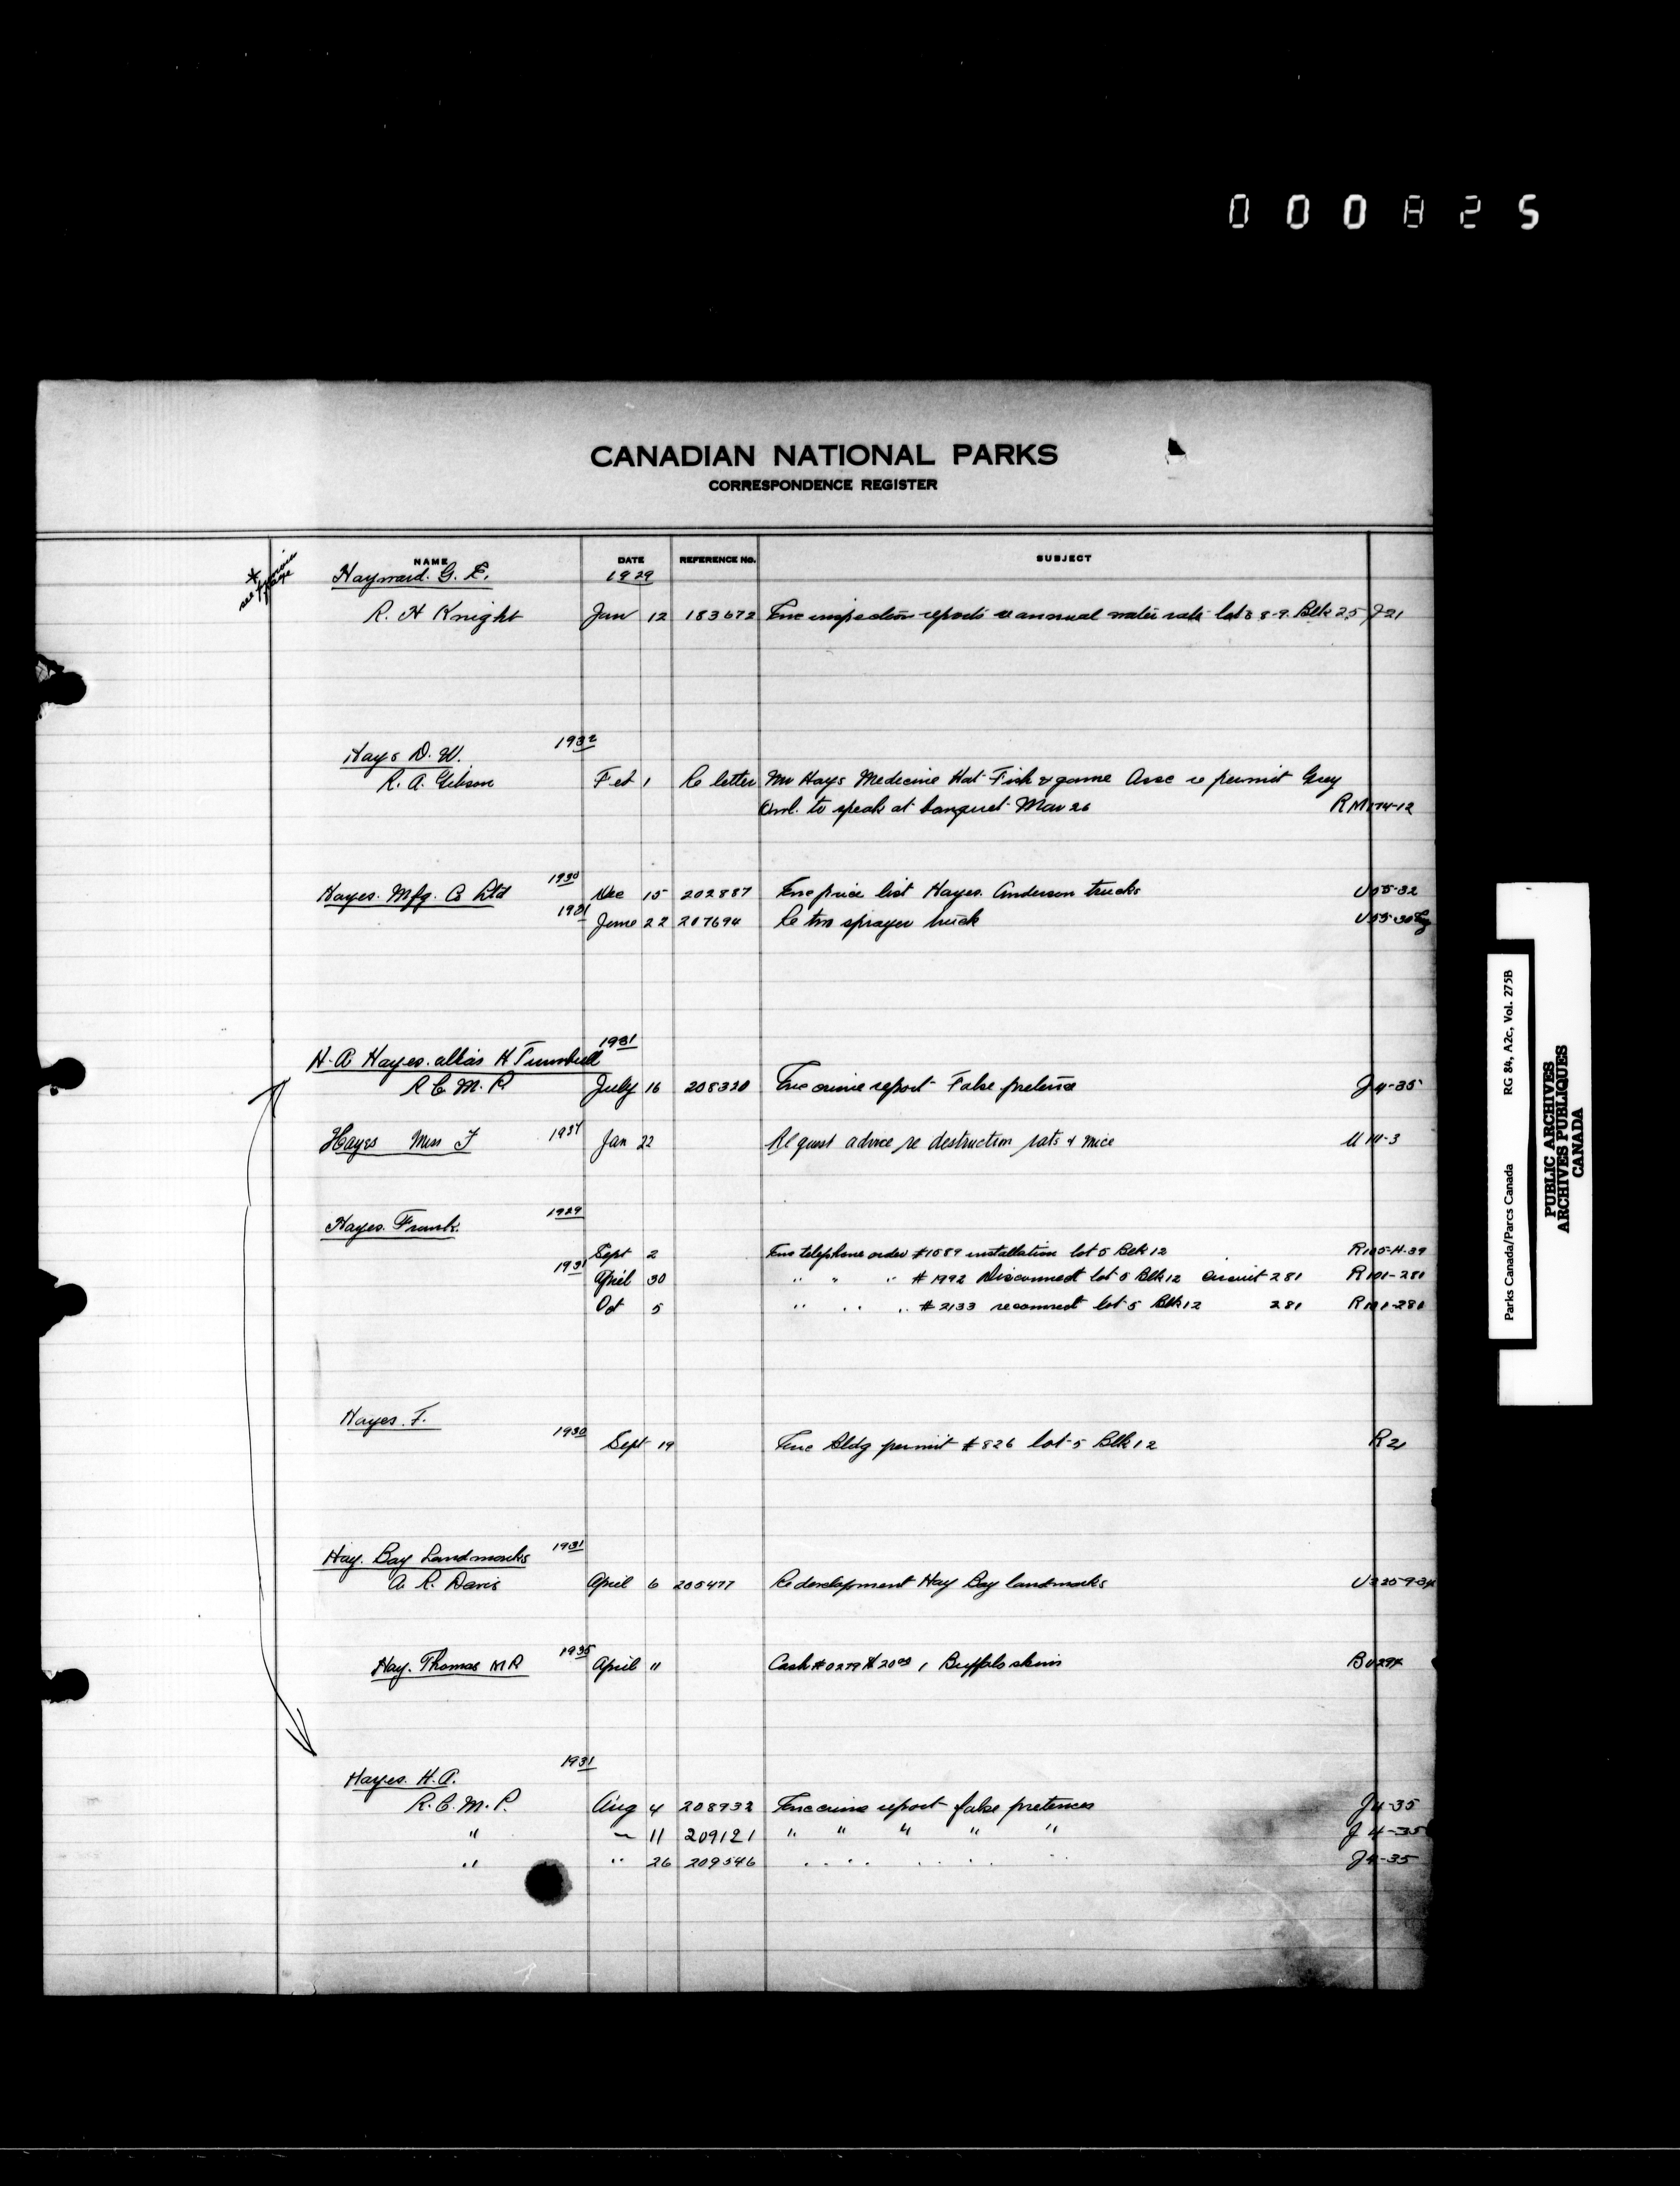 000825
CANADIAN NATIONAL PARKS
CORRESPONDENCE REGISTER
NAME DATE REFERENCE No. SUBJECT
* see previous page
Hayward. G. E. 1929
R. H Knight Jan 12 183672 Enc inspection reports re annual water rate lots 8-9. Blk 25 J-21
Hays D. W. 1932
R. A. Gibson Feb 1 Re letter Mr Hays Medicine Hat Fish & game Assc re permit Grey
Owl. to speak at banquet Mar 26 RM174-12
Hayes. Mfg. Co Ltd 1930 Dec 15 202887 Enc price list Hayes. Anderson trucks U55-32
1931 June 22 207694 Re tm sprayer truck U55-30
H. A Hayes. alias H Turnbull 1931
R C M. P. July 16 208320 Enc crime report False pretense J4-35
Hayes Miss F 1934 Jan 22 Request advice re destruction rats & mice U 111-3
Hayes. Frank. 1929
Sept 2 Enc telephone order #1589 installation lot 5 Blk 12 R105-H-39
1931 April 30 " " " #1992 Disconnect lot 5 Blk 12 Circuit 281 R101-281
Oct 5 " " " #2133 reconnect lot 5 Blk 12 281 R101-281
Hayes. F.
1930 Sept 19 Enc Bldg permit #826 lot 5 Blk 12 R21
Hay. Bay Landmarks 1931
A. R. Davis April 6 205477 Re development Hay Bay landmarks U225-9-34
Hay. Thomas M R 1935 April 11 Cash #0279 $20.00 1 Buffalo skin BU294
Hayes. H. A. 1931
R. C. M. P. Aug 4 208932 Enc crime report false pretences J4-35
" " 11 209121 " " " " " J 4-35
" " 26 209546 " " " " " J4-35
Parks Canada/Parcs Canada RG 84, A2c, Vol. 275B
PUBLIC ARCHIVES
ARCHIVES PUBLIQUES
CANADA